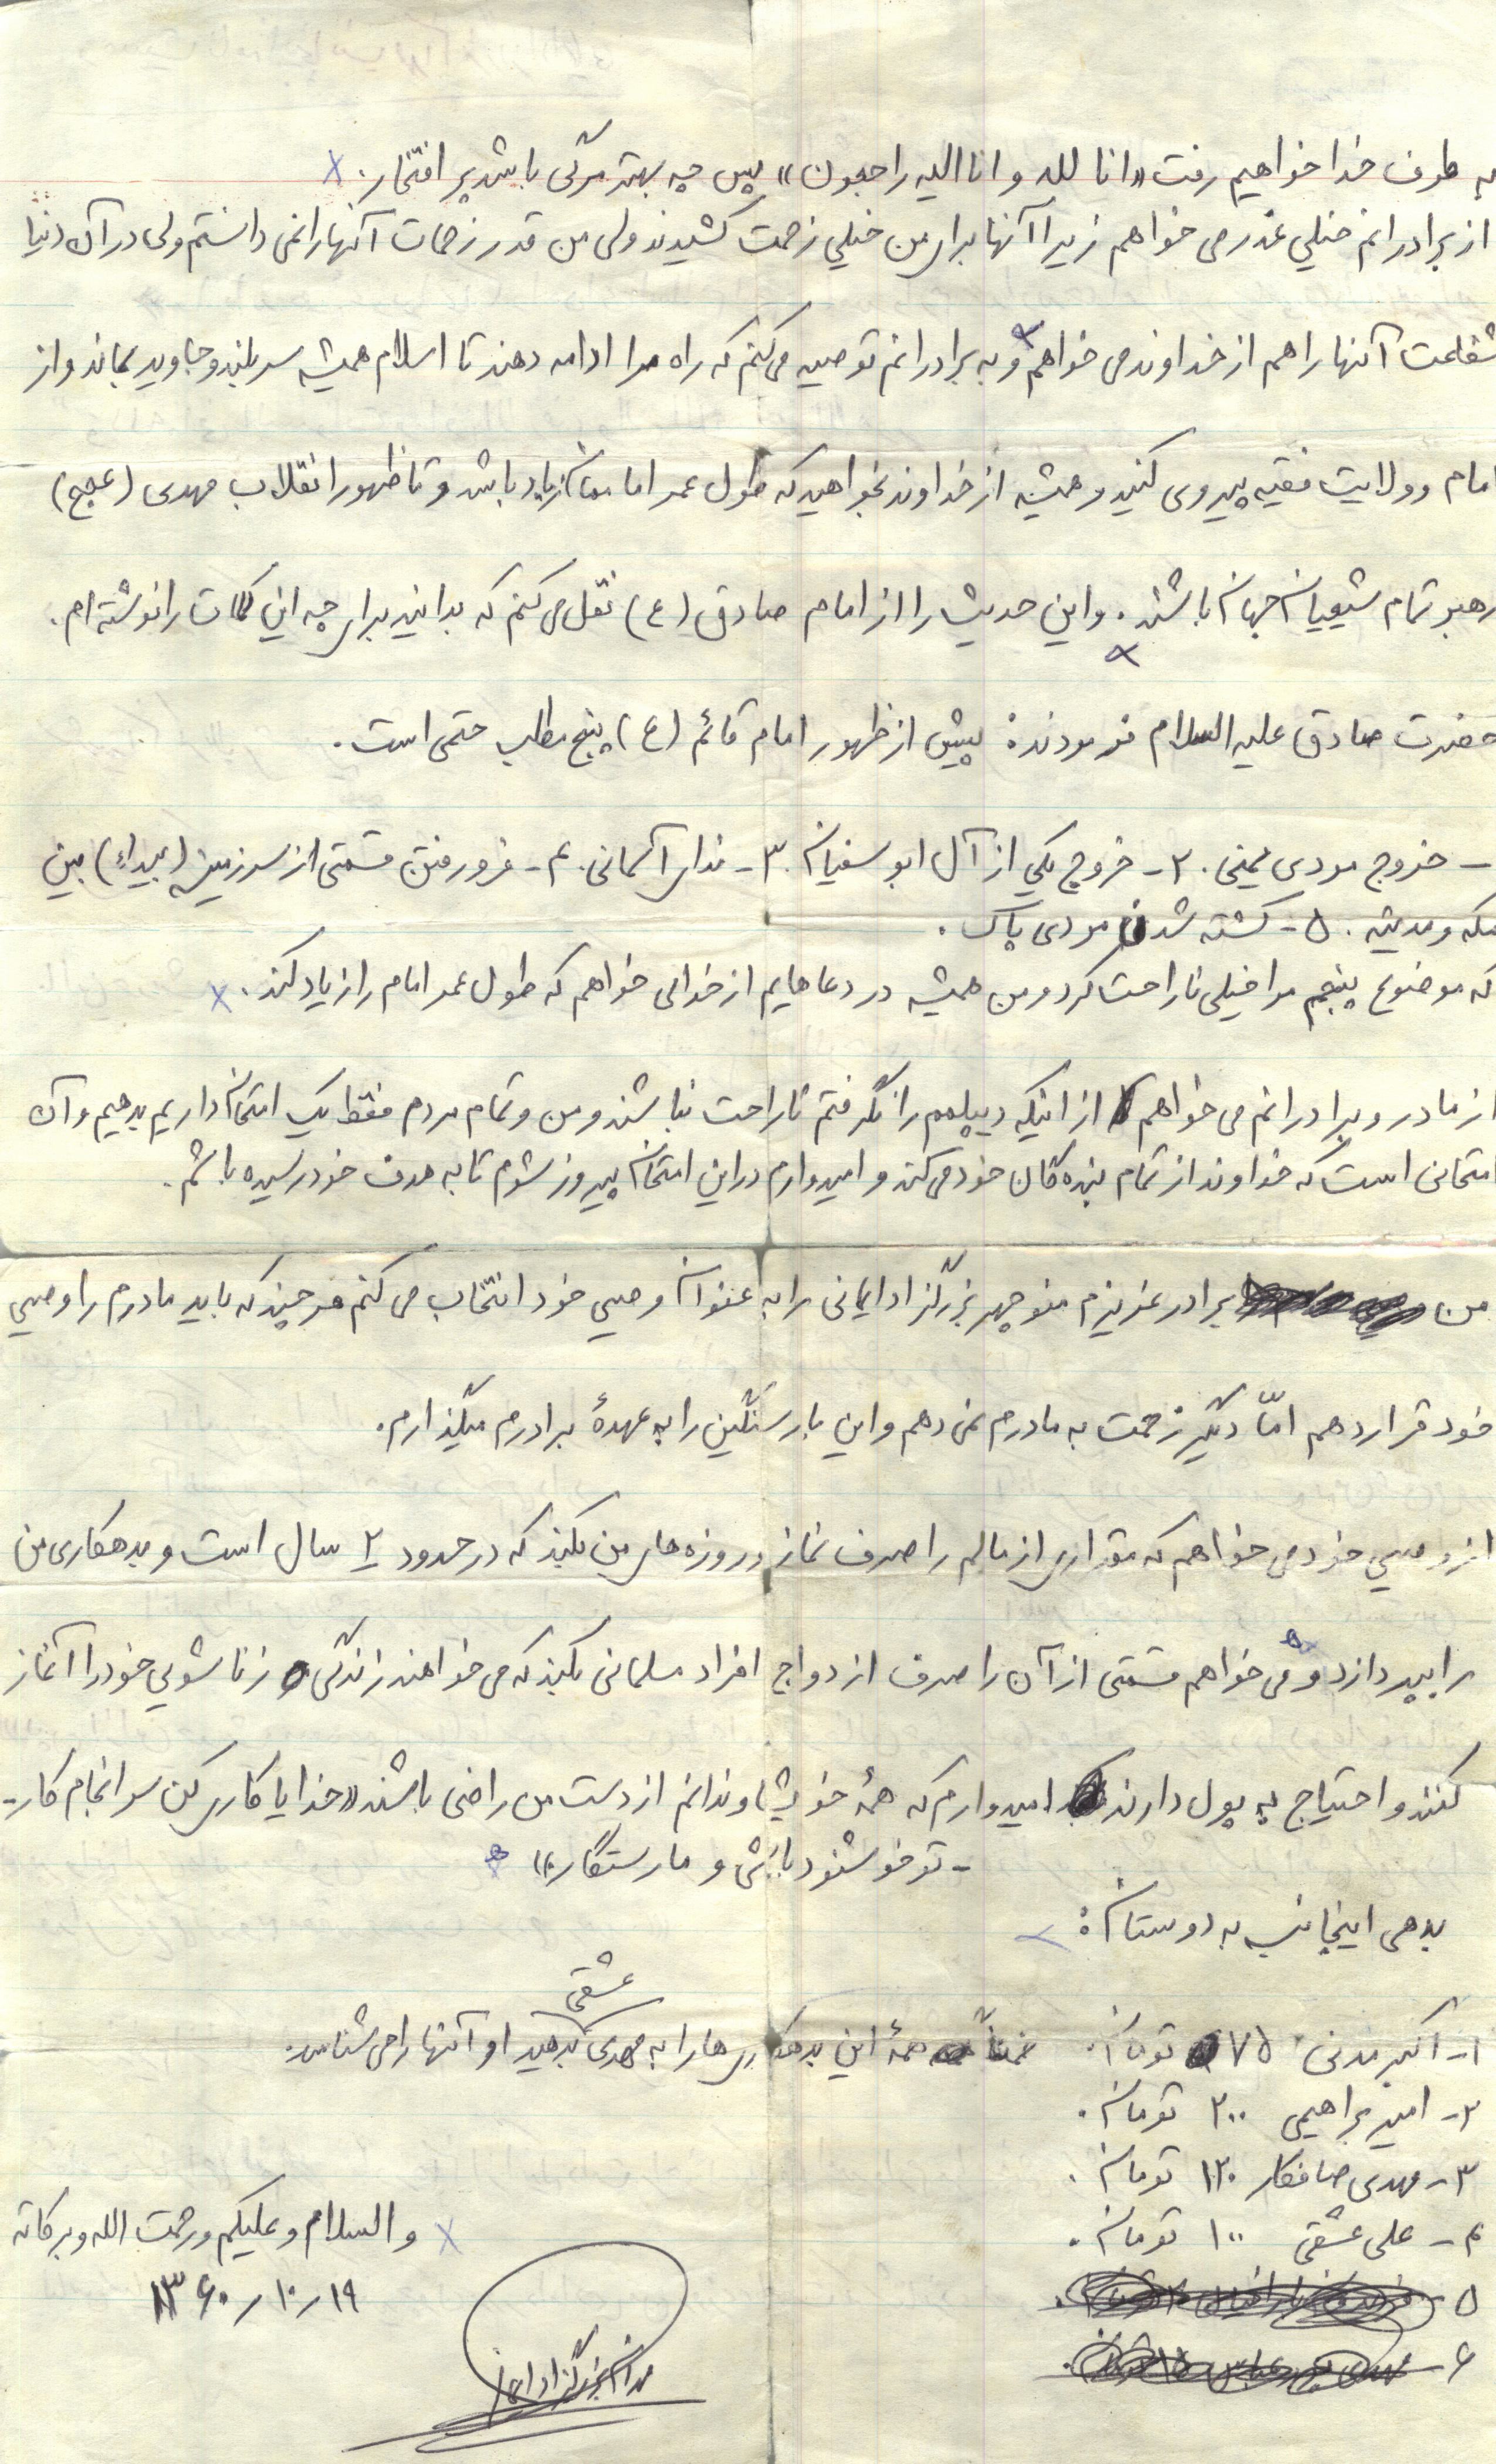 به طرف خدا خواهیم رفت «انا لله و انا الیه راجعون» پس چه بهتر مرگی باشد پر افتخار.
از برادرانم خیلی عذر می خواهم زیرا آنها برای من خیلی زحمت کشیدند ولی من قدر زحمات آنها را نمی دانستم ولی در آن دنیا
شفاعت آنها را هم از خداوند می خواهم و به برادرانم توصیه می کنم که راه مرا ادامه دهند تا اسلام همیشه سربلند و جاوید بماند و از
امام و ولایت فقیه پیروی کنید و همیشه از خداوند بخواهید که طول عمر اماممان زیاد باشد و تا ظهور انقلاب مهدی (عج)
رهبر تمام شیعیان جهان باشند. و این حدیث را از امام صادق (ع) نقل می کنم که بدانید برای چه این کلمات را نوشته ام.
حضرت صادق علیه السلام فرمودند: پیش از ظهور امام قائم (ع) پنج مطلب حتمی است.
- خروج مردی یمنی. ۲- خروج یکی از آل ابوسفیان. ۳- ندای آسمانی. ۴- فرو رفتن قسمتی از سرزمین (بیداء) بین
مکه و مدینه. ۵- کشته شدن مردی پاک.
که موضوع پنجم مرا خیلی ناراحت کرد و من همیشه در دعاهایم از خدا می خواهم که طول عمر امام را زیاد کند.
از مادر و برادرانم می خواهم از اینکه دیپلم را نگرفتم ناراحت نباشند و من و تمام مردم فقط یک امتحان داریم بدهیم و آن
امتحانی است که خداوند از تمام بنده گان خود می کند و امیدوارم در این امتحان پیروز شوم تا به هدف خود رسیده باشم.
من برادر عزیزم منوچهر بزرگزاد ایمانی را به عنوان وصی خود انتخاب می کنم هر چند که باید مادرم را وصی
خود قرار دهم امّا دیگر زحمت به مادرم نمی دهم و این بار سنگین را به عهدهٔ برادرم میگذارم.
از وصی خود می خواهم که مقداری از مالم را صرف نماز و روزه های من بکند که در حدود ۲ سال است و بدهکاری من
را بپردازد و می خواهم قسمتی از آن را صرف ازدواج افراد مسلمانی بکند که می خواهند زندگی زناشویی خود را آغاز
کنند و احتیاج به پول دارند امیدوارم که همهٔ خویشاوندانم از دست من راضی باشند «خدایا کاری کن سرانجام کار-
- تو خوشنود باشی و ما رستگار»
بدهی اینجانب به دوستان:
۱- اکبر مدنی ۷۵ تومان. ضمناً همهٔ این بدهکاری ها را به مهدی عشقی بدهید او آنها را می شناسد.
۲- امیر براهیمی ۲۰۰ تومان.
۳- مهدی صافکار ۱۲۰ تومان.
۴- علی عشقی ۱۰۰ تومان.
۵-
۶-
والسلام و علیکم و رحمت الله و برکاته
۱۳۶۰/۱۰/۱۹
بزرگزاد ایمانی